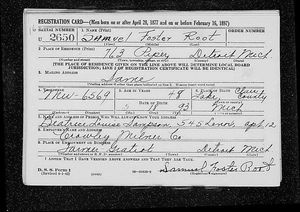 REGISTRATION CARD—(Men born on or after April 28, 1877 and on or before February 16, 1897)
SERIAL NUMBER 1. NAME (Print) ORDER NUMBER
U 2650 Samuel Foster Root
2. PLACE OF RESIDENCE (Print)
763 Piper Detroit Mich
[THE PLACE OF RESIDENCE GIVEN ON THE LINE ABOVE WILL DETERMINE LOCAL BOARD
JURISDICTION; LINE 2 OF REGISTRATION CERTIFICATE WILL BE IDENTICAL]
3. MAILING ADDRESS
Same
4. TELEPHONE 5. AGE IN YEARS 6. PLACE OF BIRTH
48 Lake County
93 Mich
7. NAME AND ADDRESS OF PERSON WHO WILL ALWAYS KNOW YOUR ADDRESS
Beatrice Louise 545 apt. 12
8. EMPLOYER'S NAME AND ADDRESS
Crowley Milner Co
9. PLACE OF EMPLOYMENT OR BUSINESS
Farmer Gratiot Detroit Mich
I AFFIRM THAT I HAVE VERIFIED ABOVE ANSWERS AND THAT THEY ARE TRUE.
D. S. S. Form 1
Samuel Foster Root